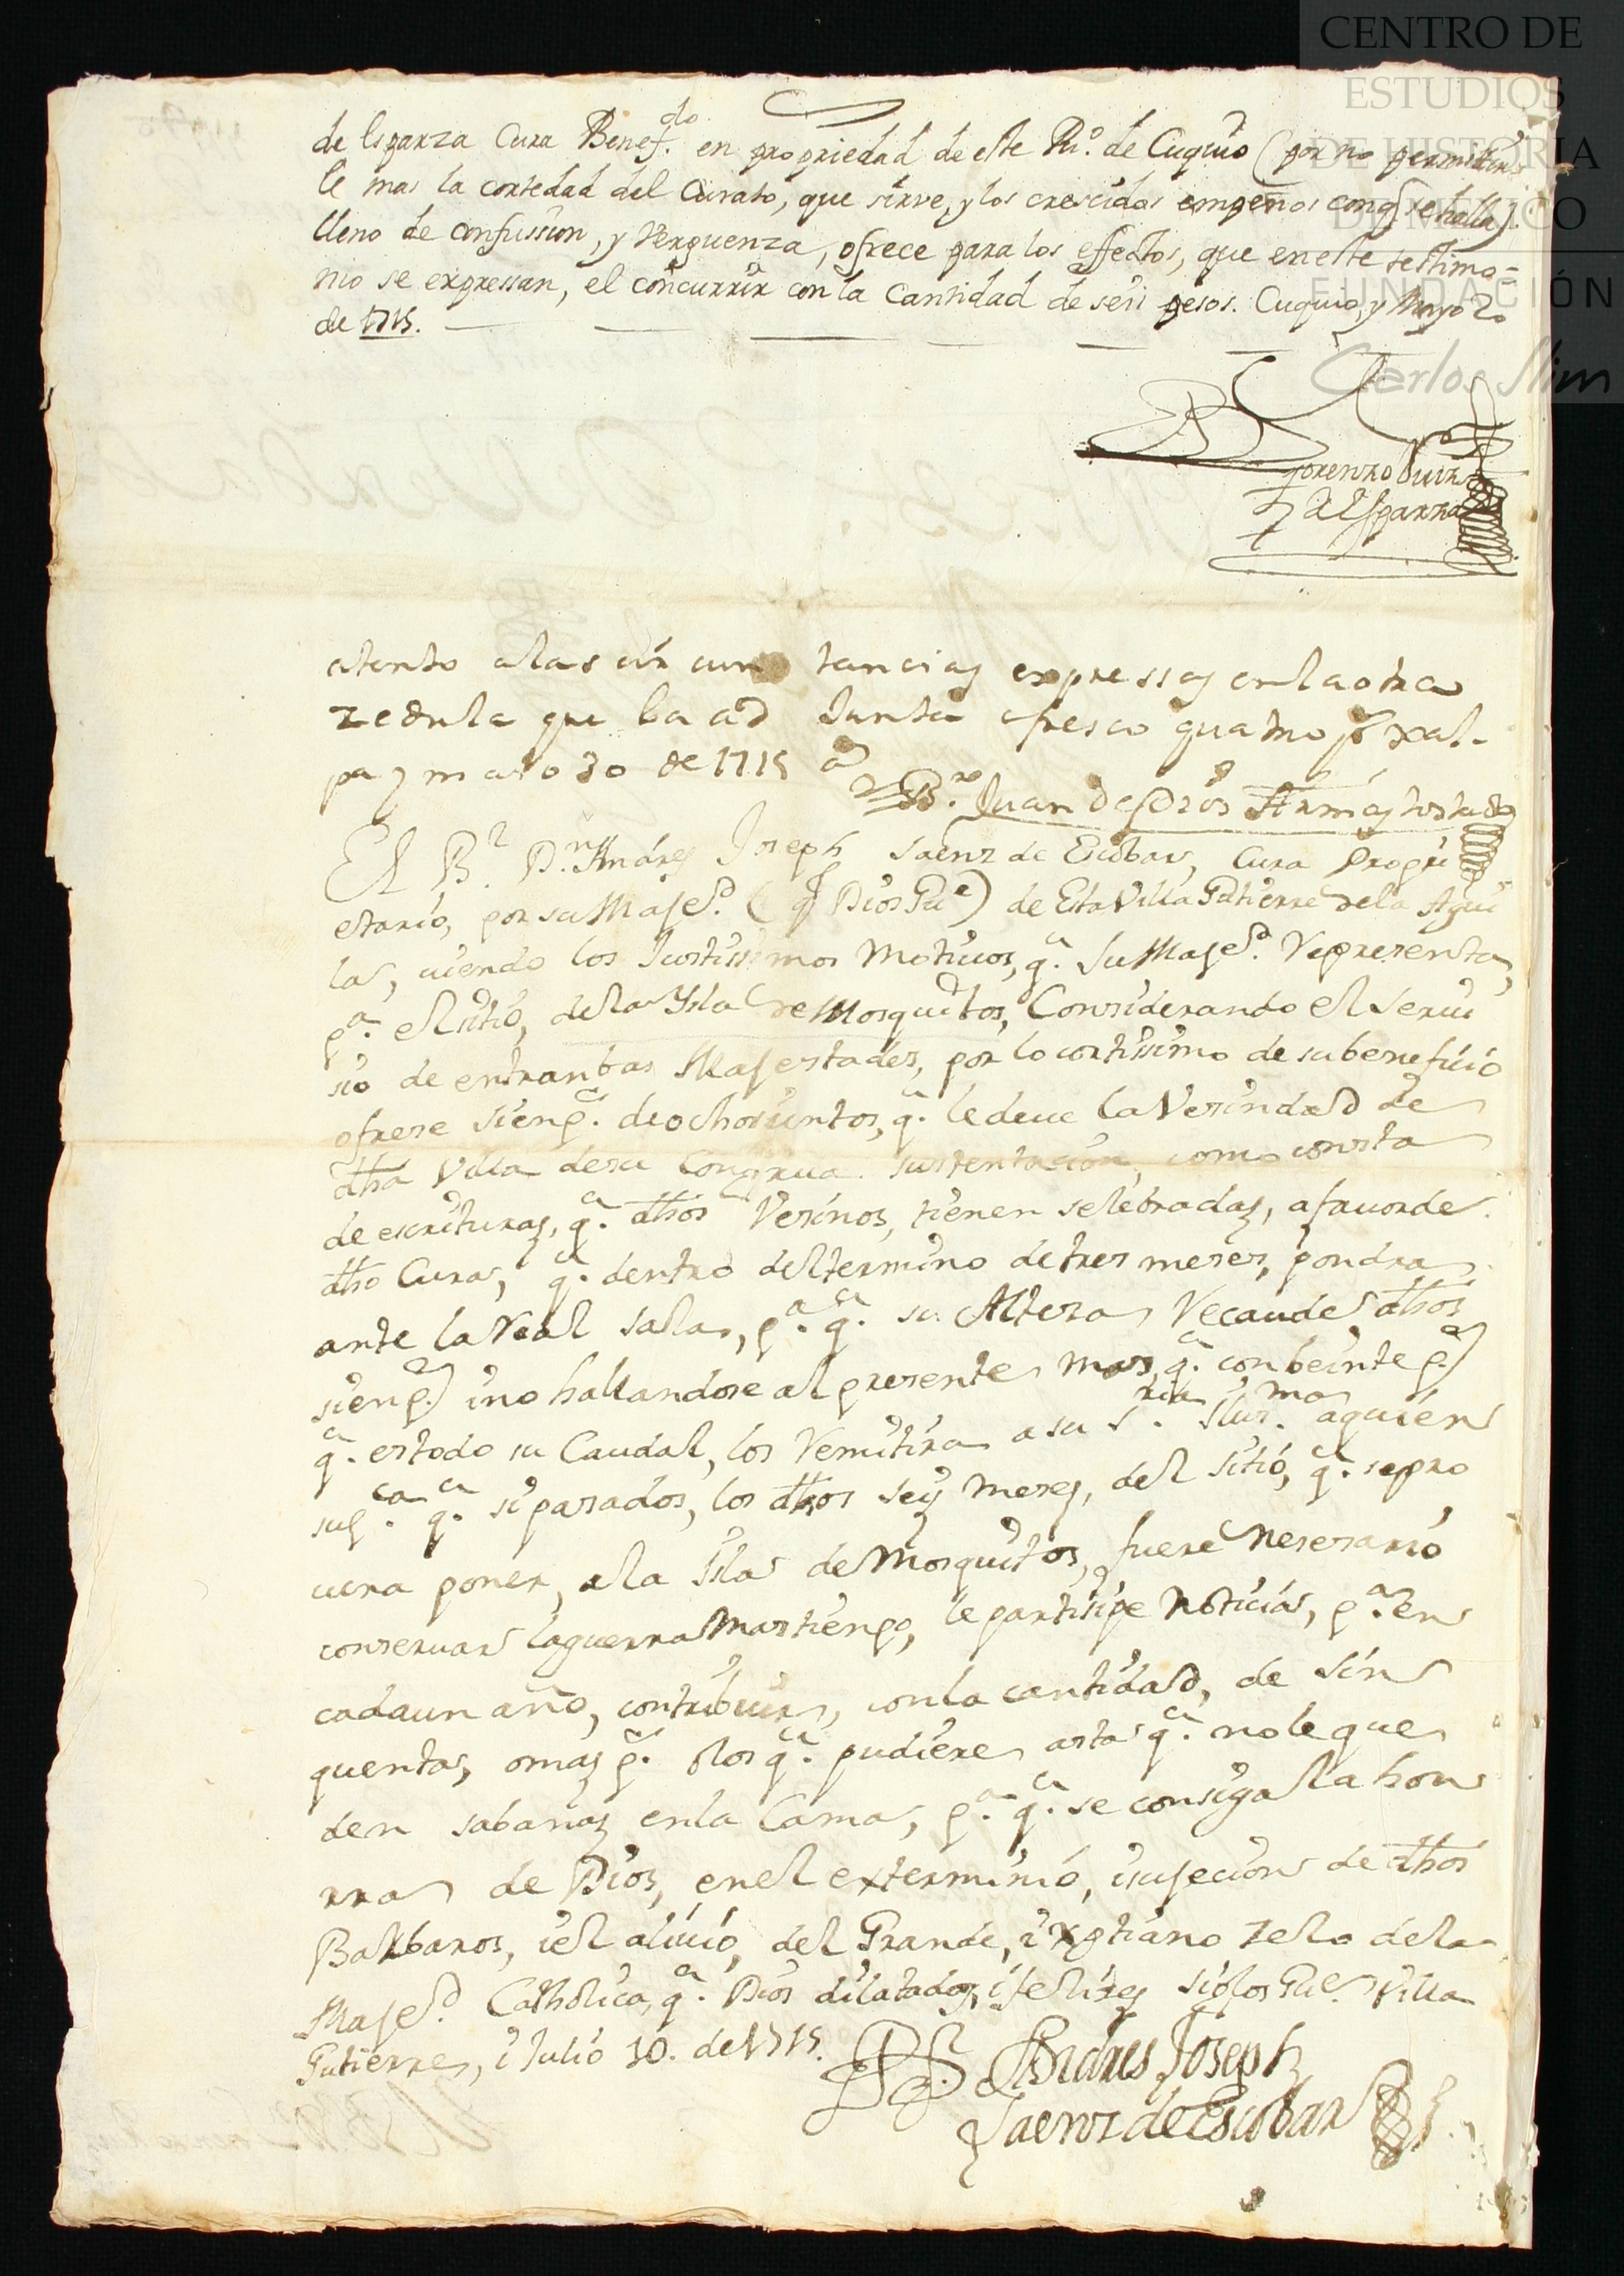 CENTRO DE
ESTUDIOS
DE HISTORIA
DE MÉXICO
FUNDACIÓN
Carlos Slim
de Esparza Cura Benef.do en propriedad de este Pu.o de Cuquio (por no permitir
le mas la cortedad del Curato, que sirve, y los crescidos empeños con q se halla).
lleno de confussion, y Verguenza, ofrece para los effectos, que en este testimo-
nio se expressan, el concurrir con la Cantidad de seis pesos. Cuquio, y Mayo 20
de 1715.
Br Lorenzo Ruiz
de Esparza
atento a las cir cuns tancias expressas en la otra
zedula que ba ad Junta ofresco quatro ps xal-
pa y maio 30 de 1715 as
Br. Juan de Armas tostado
El Br. D.n Andres Joseph Saenz de Escobar, Cura Propri
etario, por su Mages.d (q Dios Gue) de Esta Villa Gutierre de la Agui
la, uiendo los Justissimos Motiuos, q.e su Mages.d Representa,
p.a el sitio, de la Ysla de Mosquitos, Considerando el serui
sio de entranbas Magestades, por lo cortissimo de su beneficio
ofrese sien p.s de ochosientos, q.e le deue la Vesindad de
dha Villa de su Congrua sustentasion, como consta
de escrituras, q.e dhos Vesinos, tienen selebradas, a fauor de
dho Cura, q.e dentro del termino de tres meses, pondra
ante la Real sala, p.a q.e su Alteza Recaude dhos
sien p.s i no hallandose al presente mas, q.e con beinte p.s
q.e es todo su Caudal, los Remitira a su S.ria Illus.ma a quien
sup.ca q.e si pasados, los dhos seis meses, del sitio, q.e se pro
cura poner, a la Isla de Mosquitos, fuere nesesario
conseruar la guerra mas tienpo, le partisipe noticia, p.a en
cada un año, contribuir, con la cantidad, de sin
quenta, o mas p.s o los q.e pudiere asta q.e no le que
den sabanas en la Cama, p.a q.e se consiga la hon
rra de Dios, en el exterminio, i sujecion de dhos
Barbaros, i el aliuio, del Grande, i xptiano zelo de la
Mages.d Catholica, q.e Dios dilatados, i felizes siglos Gue. Villa
Gutierre, i Julio 10. de 1715.
Br. Andres Joseph
Saenz de Escobar